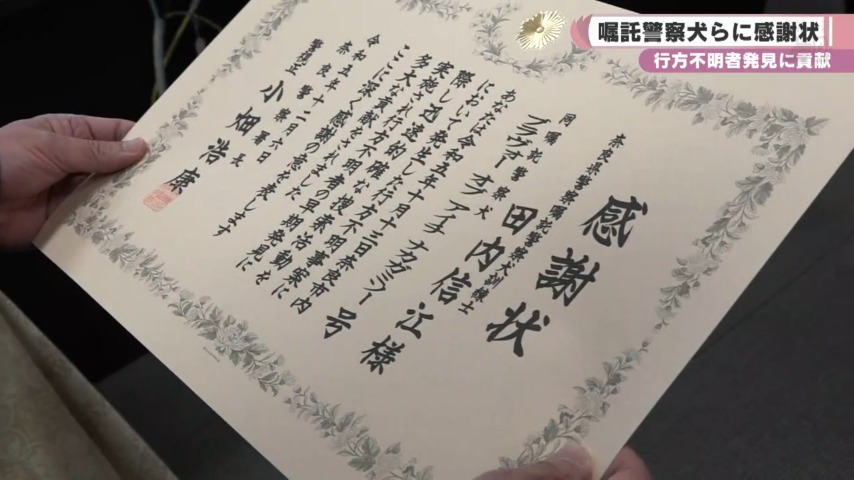 嘱託警察犬らに感謝状
行方不明者発見に貢献
感謝状
奈良県警察嘱託警察犬訓練士
田内信江様
同嘱託警察犬
ブラヴォー オブ アイチ ナカガミジー号
あなたは令和五年十月十三日奈良市内
において発生した行方不明事案に
際し迅速的確な捜索活動を
実施され行方不明者の早期発見に
多大な貢献をされました
ここに深く感謝の意を表します
令和五年十二月六日
奈良警察署長
警視正 小畑浩康